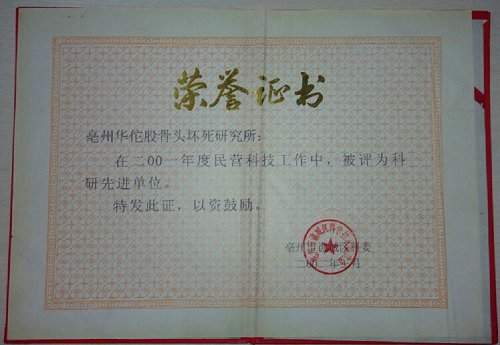 荣誉证书
亳州华佗股骨头坏死研究所：
在二00一年度民营科技工作中，被评为科
研先进单位。
特发此证，以资鼓励。
亳州市谯城区科委
二00二年 月